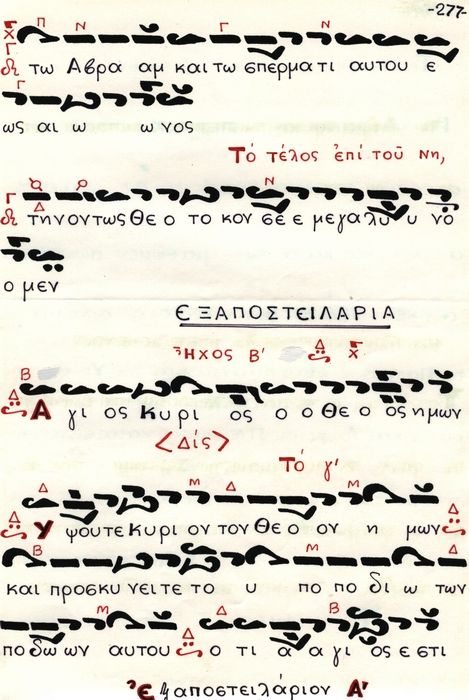 -277-
τω Αβρα αμ και τω σπερματι αυτου ε
ως αι ω ω νος
Τό τέλος ἐπί τοῦ Νη,
τηνοντως Θε ο το κον σε ε μεγαλυ υ νο
ο μεν
ΕΞΑΠΟΣΤΕΙΛΑΡΙΑ
Ἦχος Β'
Α γι ος Κυρι ος ο ο Θε ο ος ημων
<Δίς>
Τό γ'
Υ ψουτε Κυρι ον τον Θε ο ον η μων
και προσκυ νειτε το υ πο πο δι ω των
πο δω ων αυτου ο τι α α γι ος ε στι
Ἐξαποστειλάριον Α'